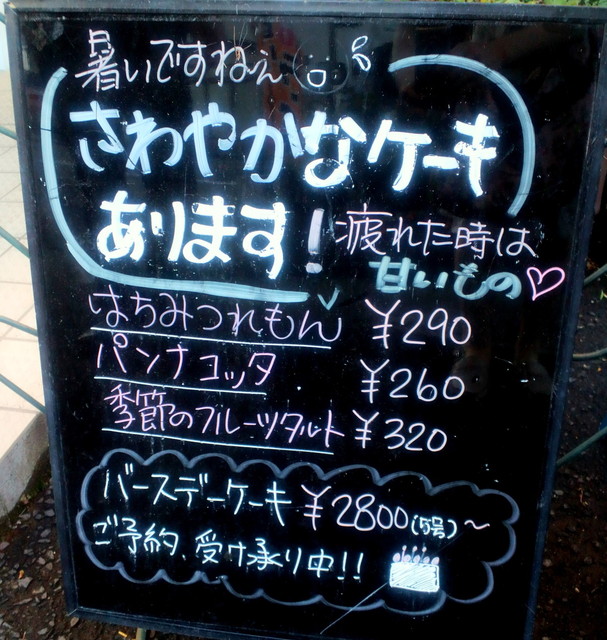 暑いですねぇ
さわやかなケーキ
あります!
疲れた時は
甘いもの♡
はちみつれもん ¥290
パンナコッタ ¥260
季節のフルーツタルト ¥320
バースデーケーキ ¥2800(5号)～
ご予約、受け承り中!!